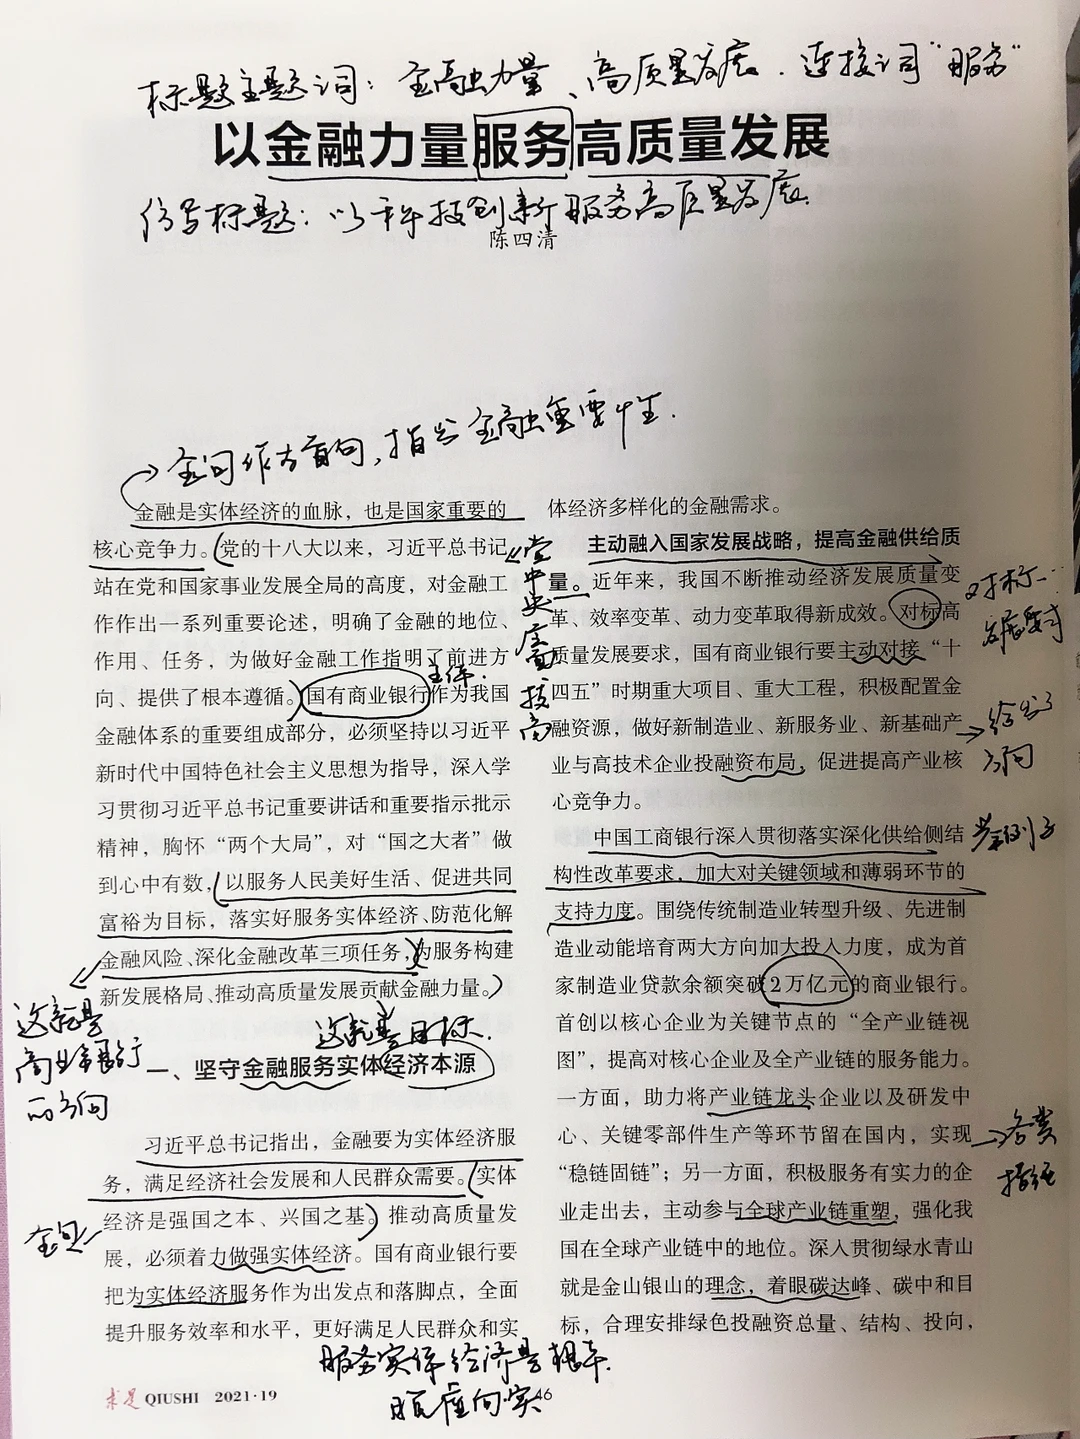 标题主题词：金融力量、高质量发展．连接词“服务”
以金融力量服务高质量发展
仿写标题：以科技创新服务高质量发展．
陈四清
金句作为首句，指出金融重要性．
金融是实体经济的血脉，也是国家重要的
核心竞争力。党的十八大以来，习近平总书记
站在党和国家事业发展全局的高度，对金融工
作作出一系列重要论述，明确了金融的地位、
作用、任务，为做好金融工作指明了前进方
向、提供了根本遵循。国有商业银行作为我国
主体．
金融体系的重要组成部分，必须坚持以习近平
新时代中国特色社会主义思想为指导，深入学
习贯彻习近平总书记重要讲话和重要指示批示
精神，胸怀“两个大局”，对“国之大者”做
到心中有数，以服务人民美好生活、促进共同
富裕为目标，落实好服务实体经济、防范化解
金融风险、深化金融改革三项任务，为服务构建
新发展格局、推动高质量发展贡献金融力量。
这就是
商业银行
的方向
这就是目标．
一、坚守金融服务实体经济本源
习近平总书记指出，金融要为实体经济服
务，满足经济社会发展和人民群众需要。实体
经济是强国之本、兴国之基。推动高质量发
金句
展，必须着力做强实体经济。国有商业银行要
把为实体经济服务作为出发点和落脚点，全面
提升服务效率和水平，更好满足人民群众和实
服务实体经济是根本．
党中央高度
拔高
体经济多样化的金融需求。
主动融入国家发展战略，提高金融供给质
量。近年来，我国不断推动经济发展质量变
革、效率变革、动力变革取得新成效。对标高
质量发展要求，国有商业银行要主动对接“十
四五”时期重大项目、重大工程，积极配置金
融资源，做好新制造业、新服务业、新基础产
业与高技术企业投融资布局，促进提高产业核
心竞争力。
对标…
发展要求
给出了
方向
中国工商银行深入贯彻落实深化供给侧结
构性改革要求，加大对关键领域和薄弱环节的
支持力度。围绕传统制造业转型升级、先进制
造业动能培育两大方向加大投入力度，成为首
家制造业贷款余额突破2万亿元的商业银行。
首创以核心企业为关键节点的“全产业链视
图”，提高对核心企业及全产业链的服务能力。
一方面，助力将产业链龙头企业以及研发中
心、关键零部件生产等环节留在国内，实现
“稳链固链”；另一方面，积极服务有实力的企
业走出去，主动参与全球产业链重塑，强化我
国在全球产业链中的地位。深入贯彻绿水青山
就是金山银山的理念，着眼碳达峰、碳中和目
标，合理安排绿色投融资总量、结构、投向，
举例子
各类
求是 QIUSHI 2021·19
46